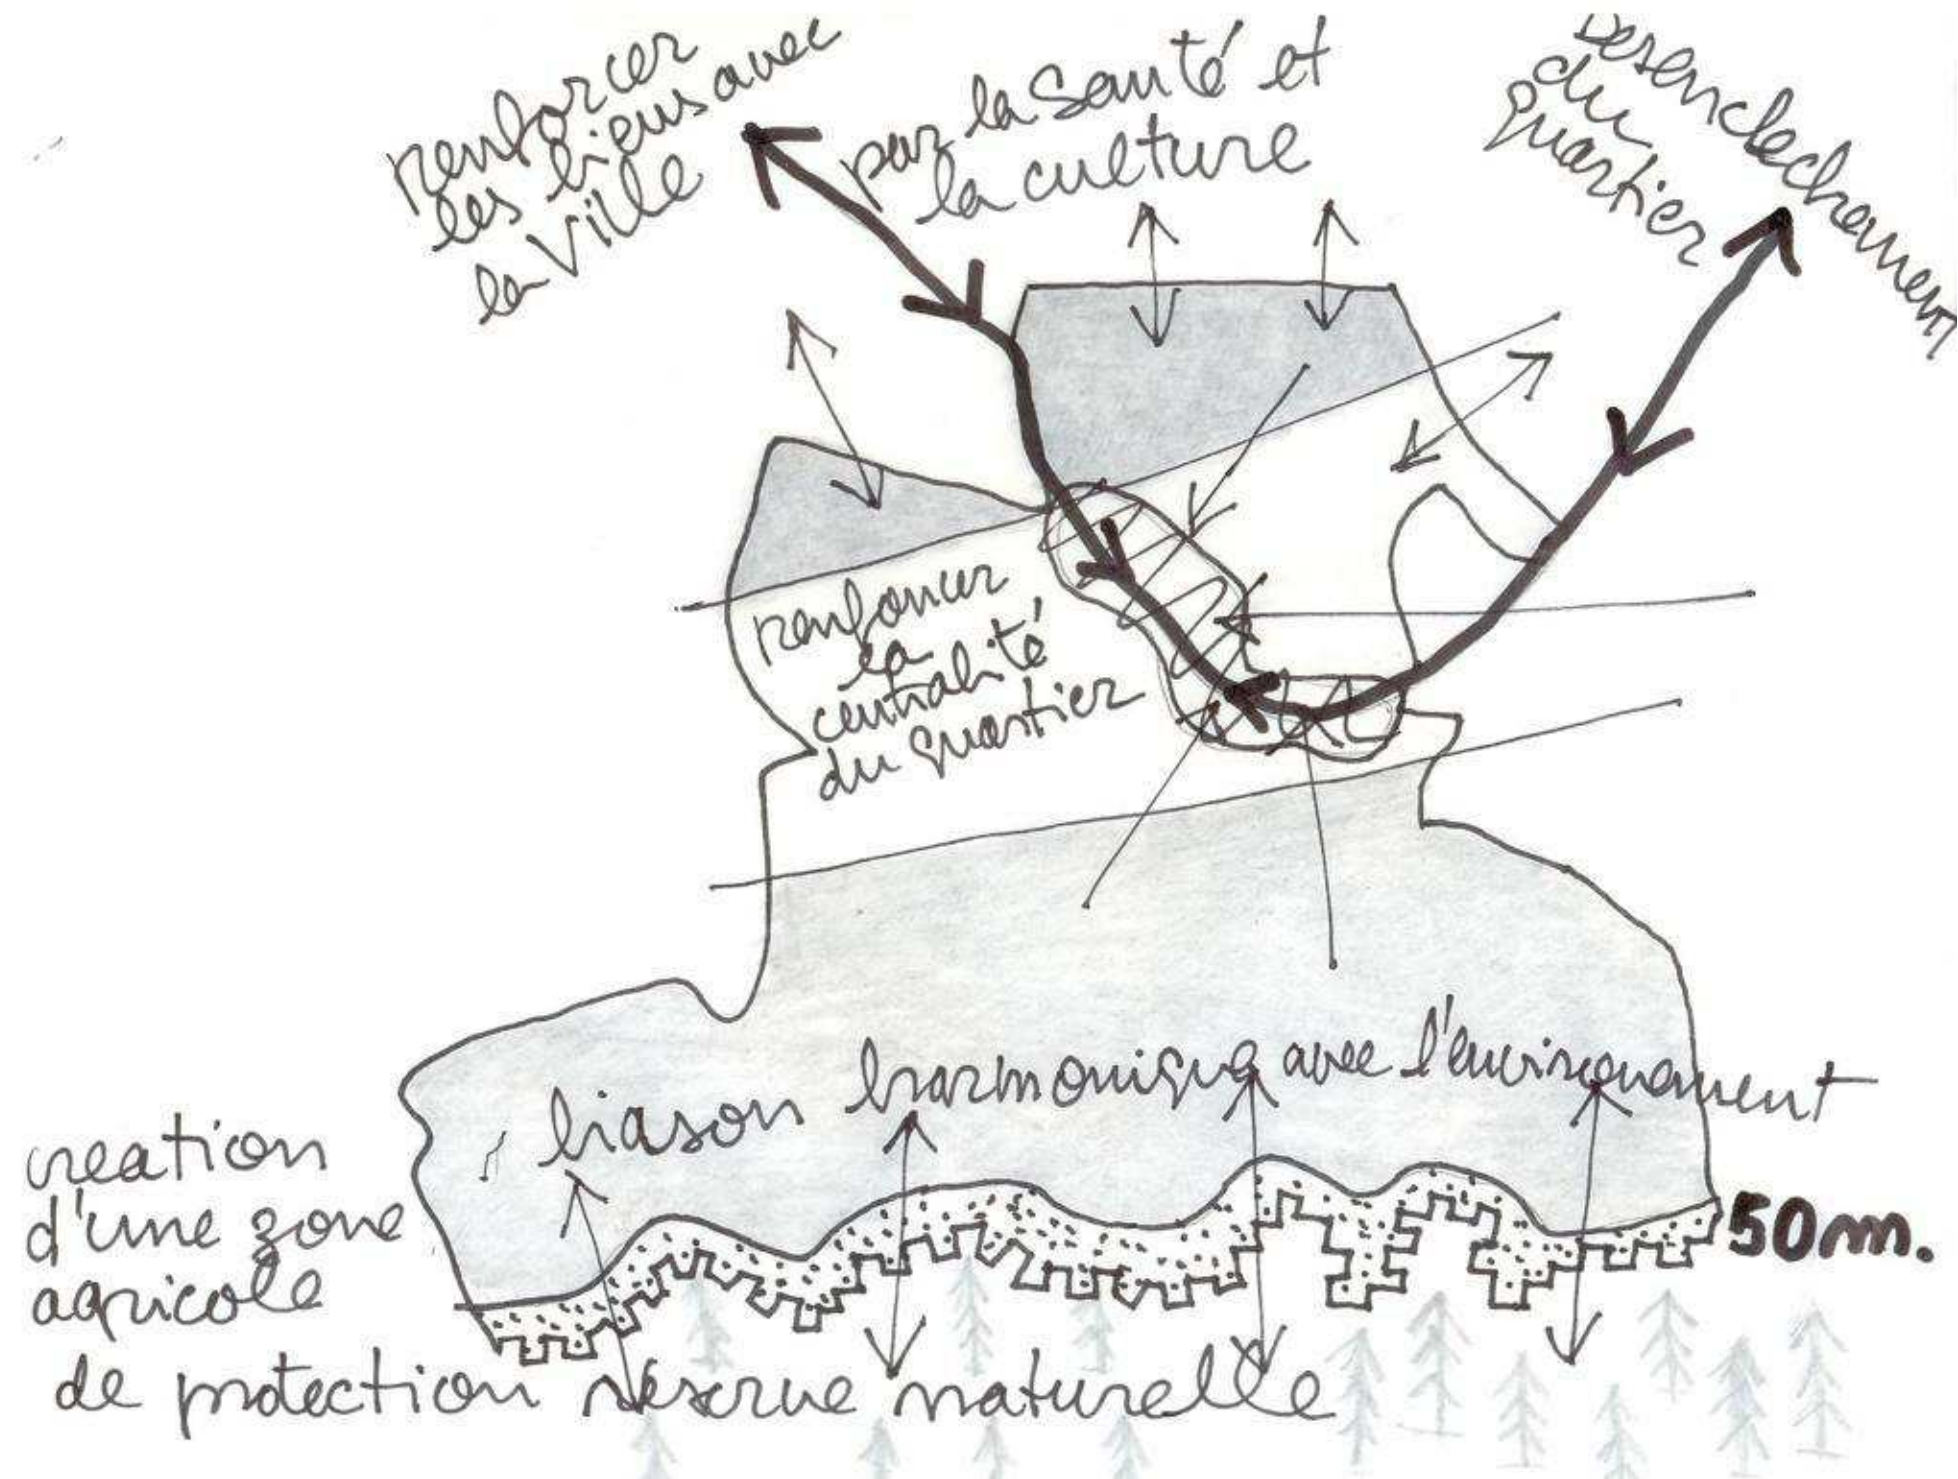 renforcer
les liens avec
la Ville
par la Santé et
la culture
Desenclachement
du
quartier
renforcer
la
centralité
du quartier
liason harmonique avec l'environement
creation
d'une zone
agricole
de protection réserve naturelle
50m.